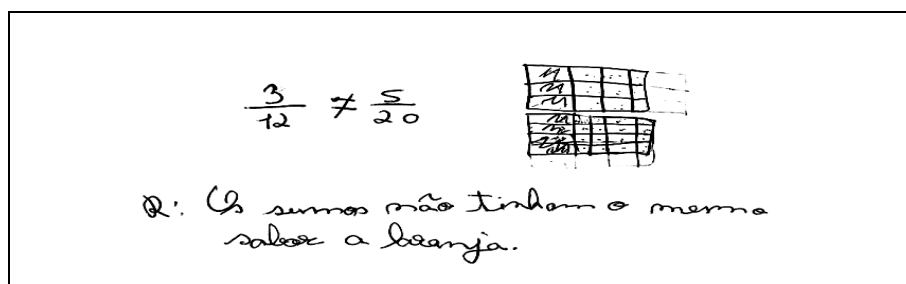 3/12 ≠ 5/20
R: Os sumos não tinham o mesmo
sabor a laranja.